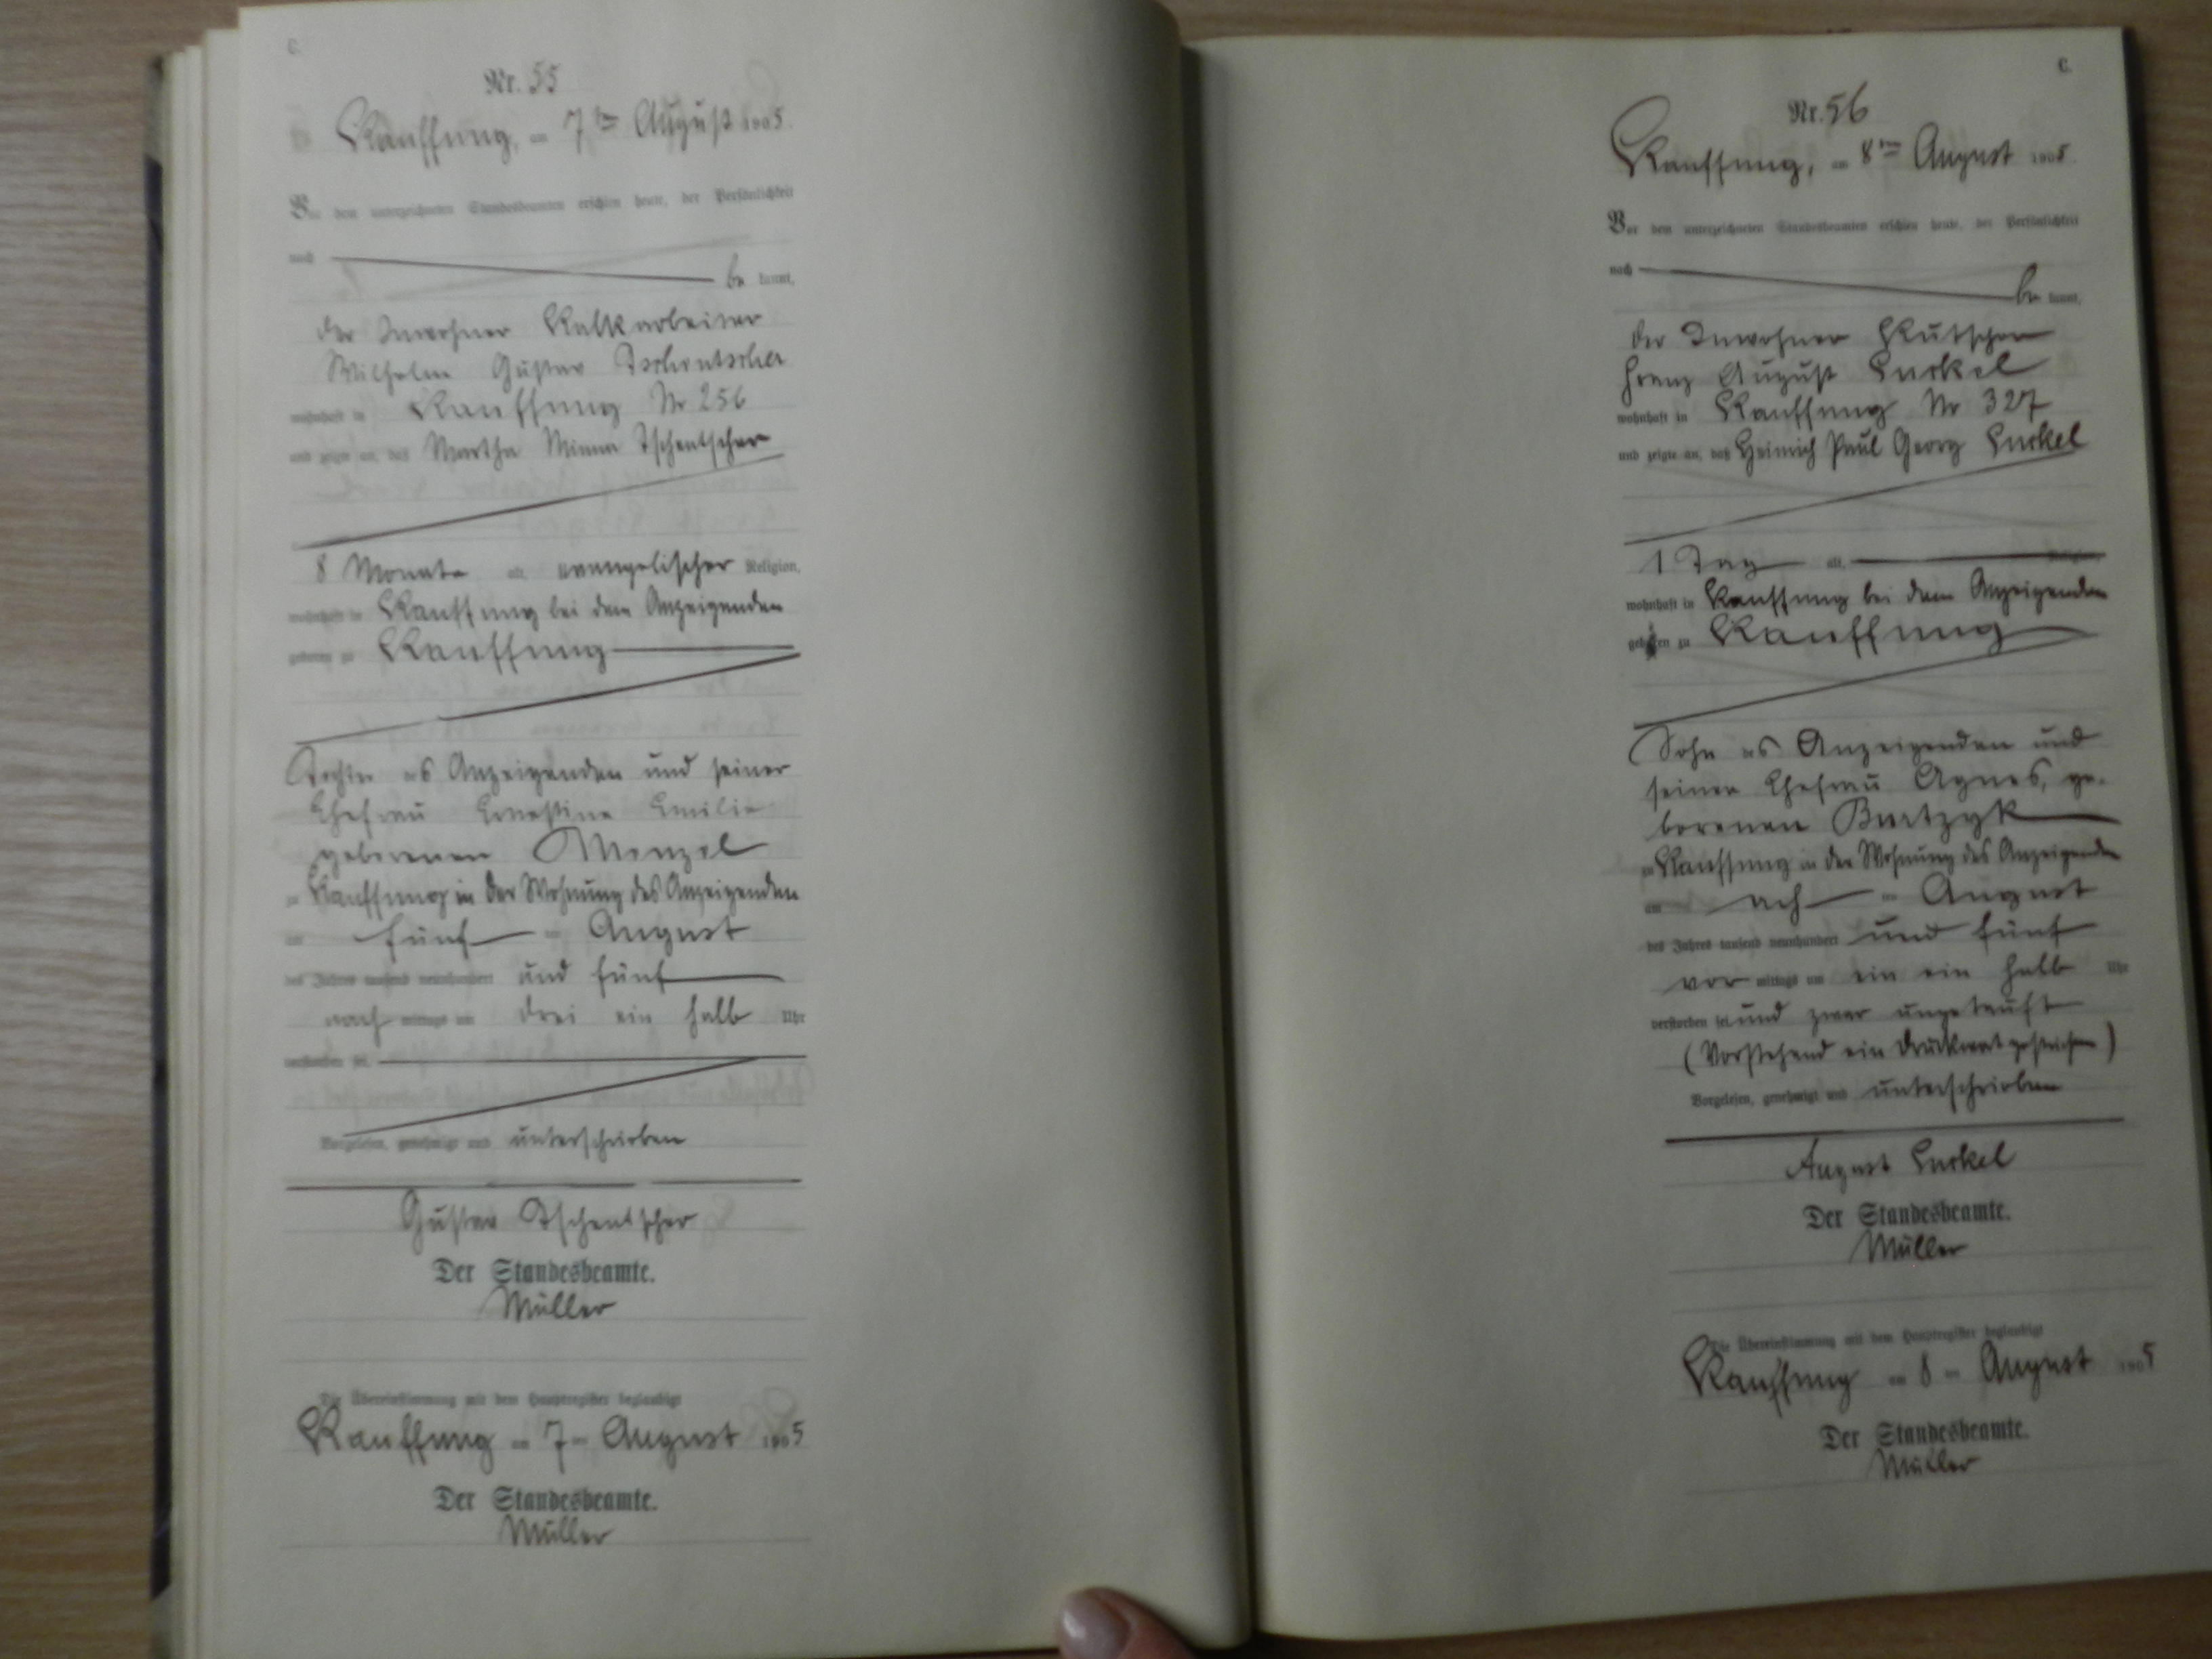 C.
Nr. 55
Kauffung, am 7ten August 1905.
Vor dem unterzeichneten Standesbeamten erschien heute, der Persönlichkeit
nach
be kannt,
der Inwohner Kalkarbeiter
Wilhelm Gustav Tschentscher
wohnhaft in Kauffung Nr 256
und zeigte an, daß Martha Minna Tschentscher
8 Monate alt, evangelischer Religion,
wohnhaft in Kauffung bei dem Anzeigenden
geboren zu Kauffung
Tochter des Anzeigenden und seiner
Ehefrau Ernestine Emilie
geborenen Menzel
zu Kauffung in der Wohnung des Anzeigenden
am fünf ten August
des Jahres tausend neunhundert und fünf
nach mittags um drei ein halb Uhr
verstorben sei.
Vorgelesen, genehmigt und unterschrieben
Gustav Tschentscher
Der Standesbeamte.
Müller
Die Übereinstimmung mit dem Hauptregister beglaubigt
Kauffung am 7ten August 1905
Der Standesbeamte.
Müller
C.
Nr. 56
Kauffung, am 8ten August 1905.
Vor dem unterzeichneten Standesbeamten erschien heute, der Persönlichkeit
nach
be kannt,
der Inwohner Kutscher
Franz August
wohnhaft in Kauffung Nr 327
und zeigte an, daß Heinrich Paul Georg
1 Tag alt, Religion,
wohnhaft in Kauffung bei dem Anzeigenden
geboren zu Kauffung
Sohn des Anzeigenden und
seiner Ehefrau Agnes, ge-
borenen
zu Kauffung in der Wohnung des Anzeigenden
am ach ten August
des Jahres tausend neunhundert und fünf
vor mittags um ein ein halb Uhr
verstorben sei und zwar ungetauft
(Vorstehend ein Druckwort gestrichen)
Vorgelesen, genehmigt und unterschrieben
August
Der Standesbeamte.
Müller
Die Übereinstimmung mit dem Hauptregister beglaubigt
Kauffung am 8ten August 1905
Der Standesbeamte.
Müller